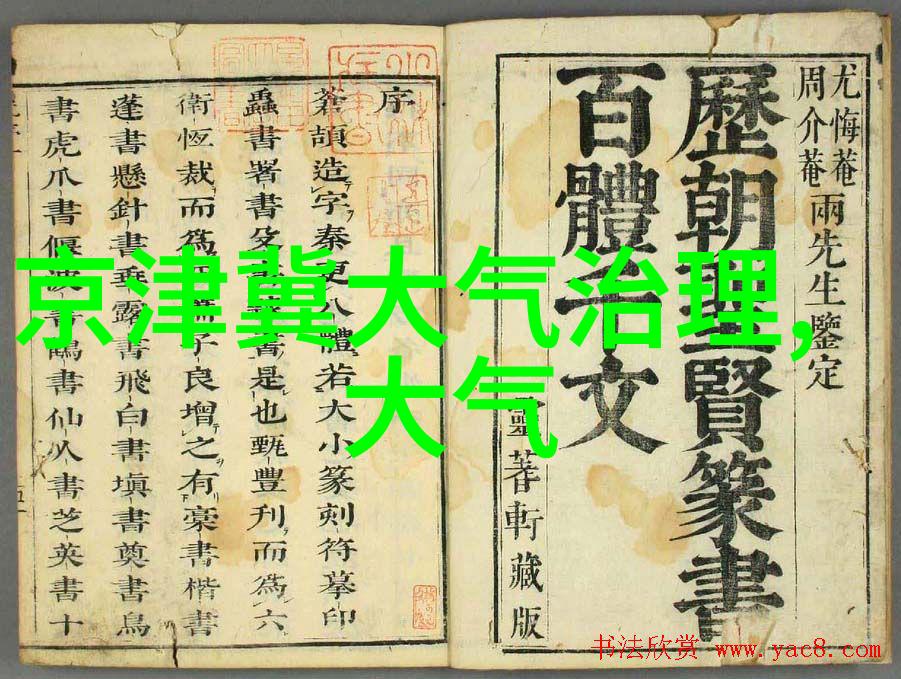 京津冀大气治理,
大气
尤悔菴
周介菴
兩先生鑒定
歷朝聖賢篆書
百體千文
靈蓍軒藏版
序
蒼頡造字秦更八體若大小篆刻符摹印
蟲書署書殳書書是也甄豐刋而爲六
衛恆裁而爲子良增之有藁書楷書
蓬書懸針書垂露書飛白書塡書奠書鳥
書虎爪書偃波書鶴書仙人書芝英書十
书法欣赏 www.yac8.com